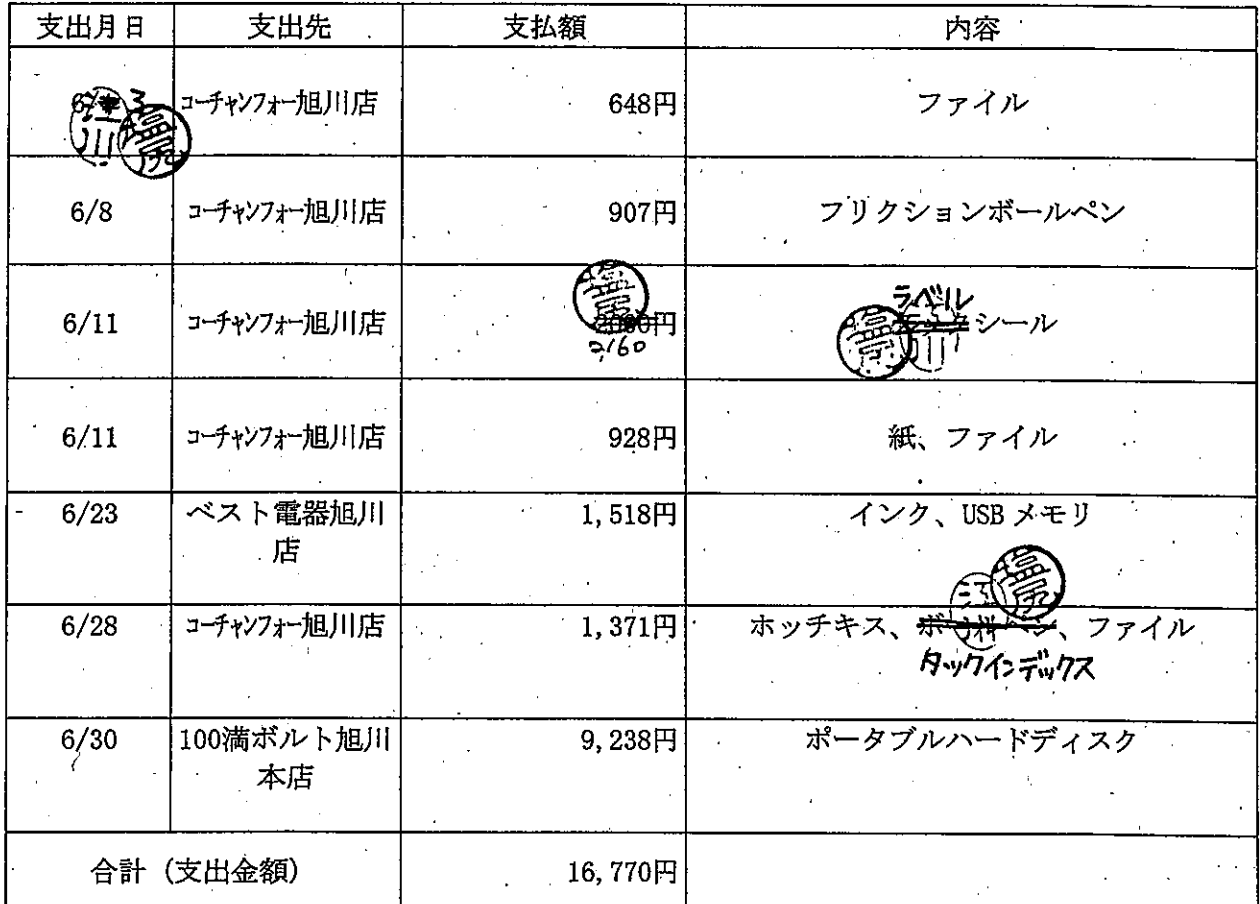 支出月日 支出先 支払額 内容
6/ 3 コーチャンフォー旭川店 648円 ファイル
6/8 コーチャンフォー旭川店 907円 フリクションボールペン
ラベル
6/11 コーチャンフォー旭川店 円 シール
2160
6/11 コーチャンフォー旭川店 928円 紙、ファイル
6/23 ベスト電器旭川 1,518円 インク、USBメモリ
店
6/28 コーチャンフォー旭川店 1,371円 ホッチキス、、ファイル
タックインデックス
6/30 100満ボルト旭川 9,238円 ポータブルハードディスク
本店
合計(支出金額) 16,770円